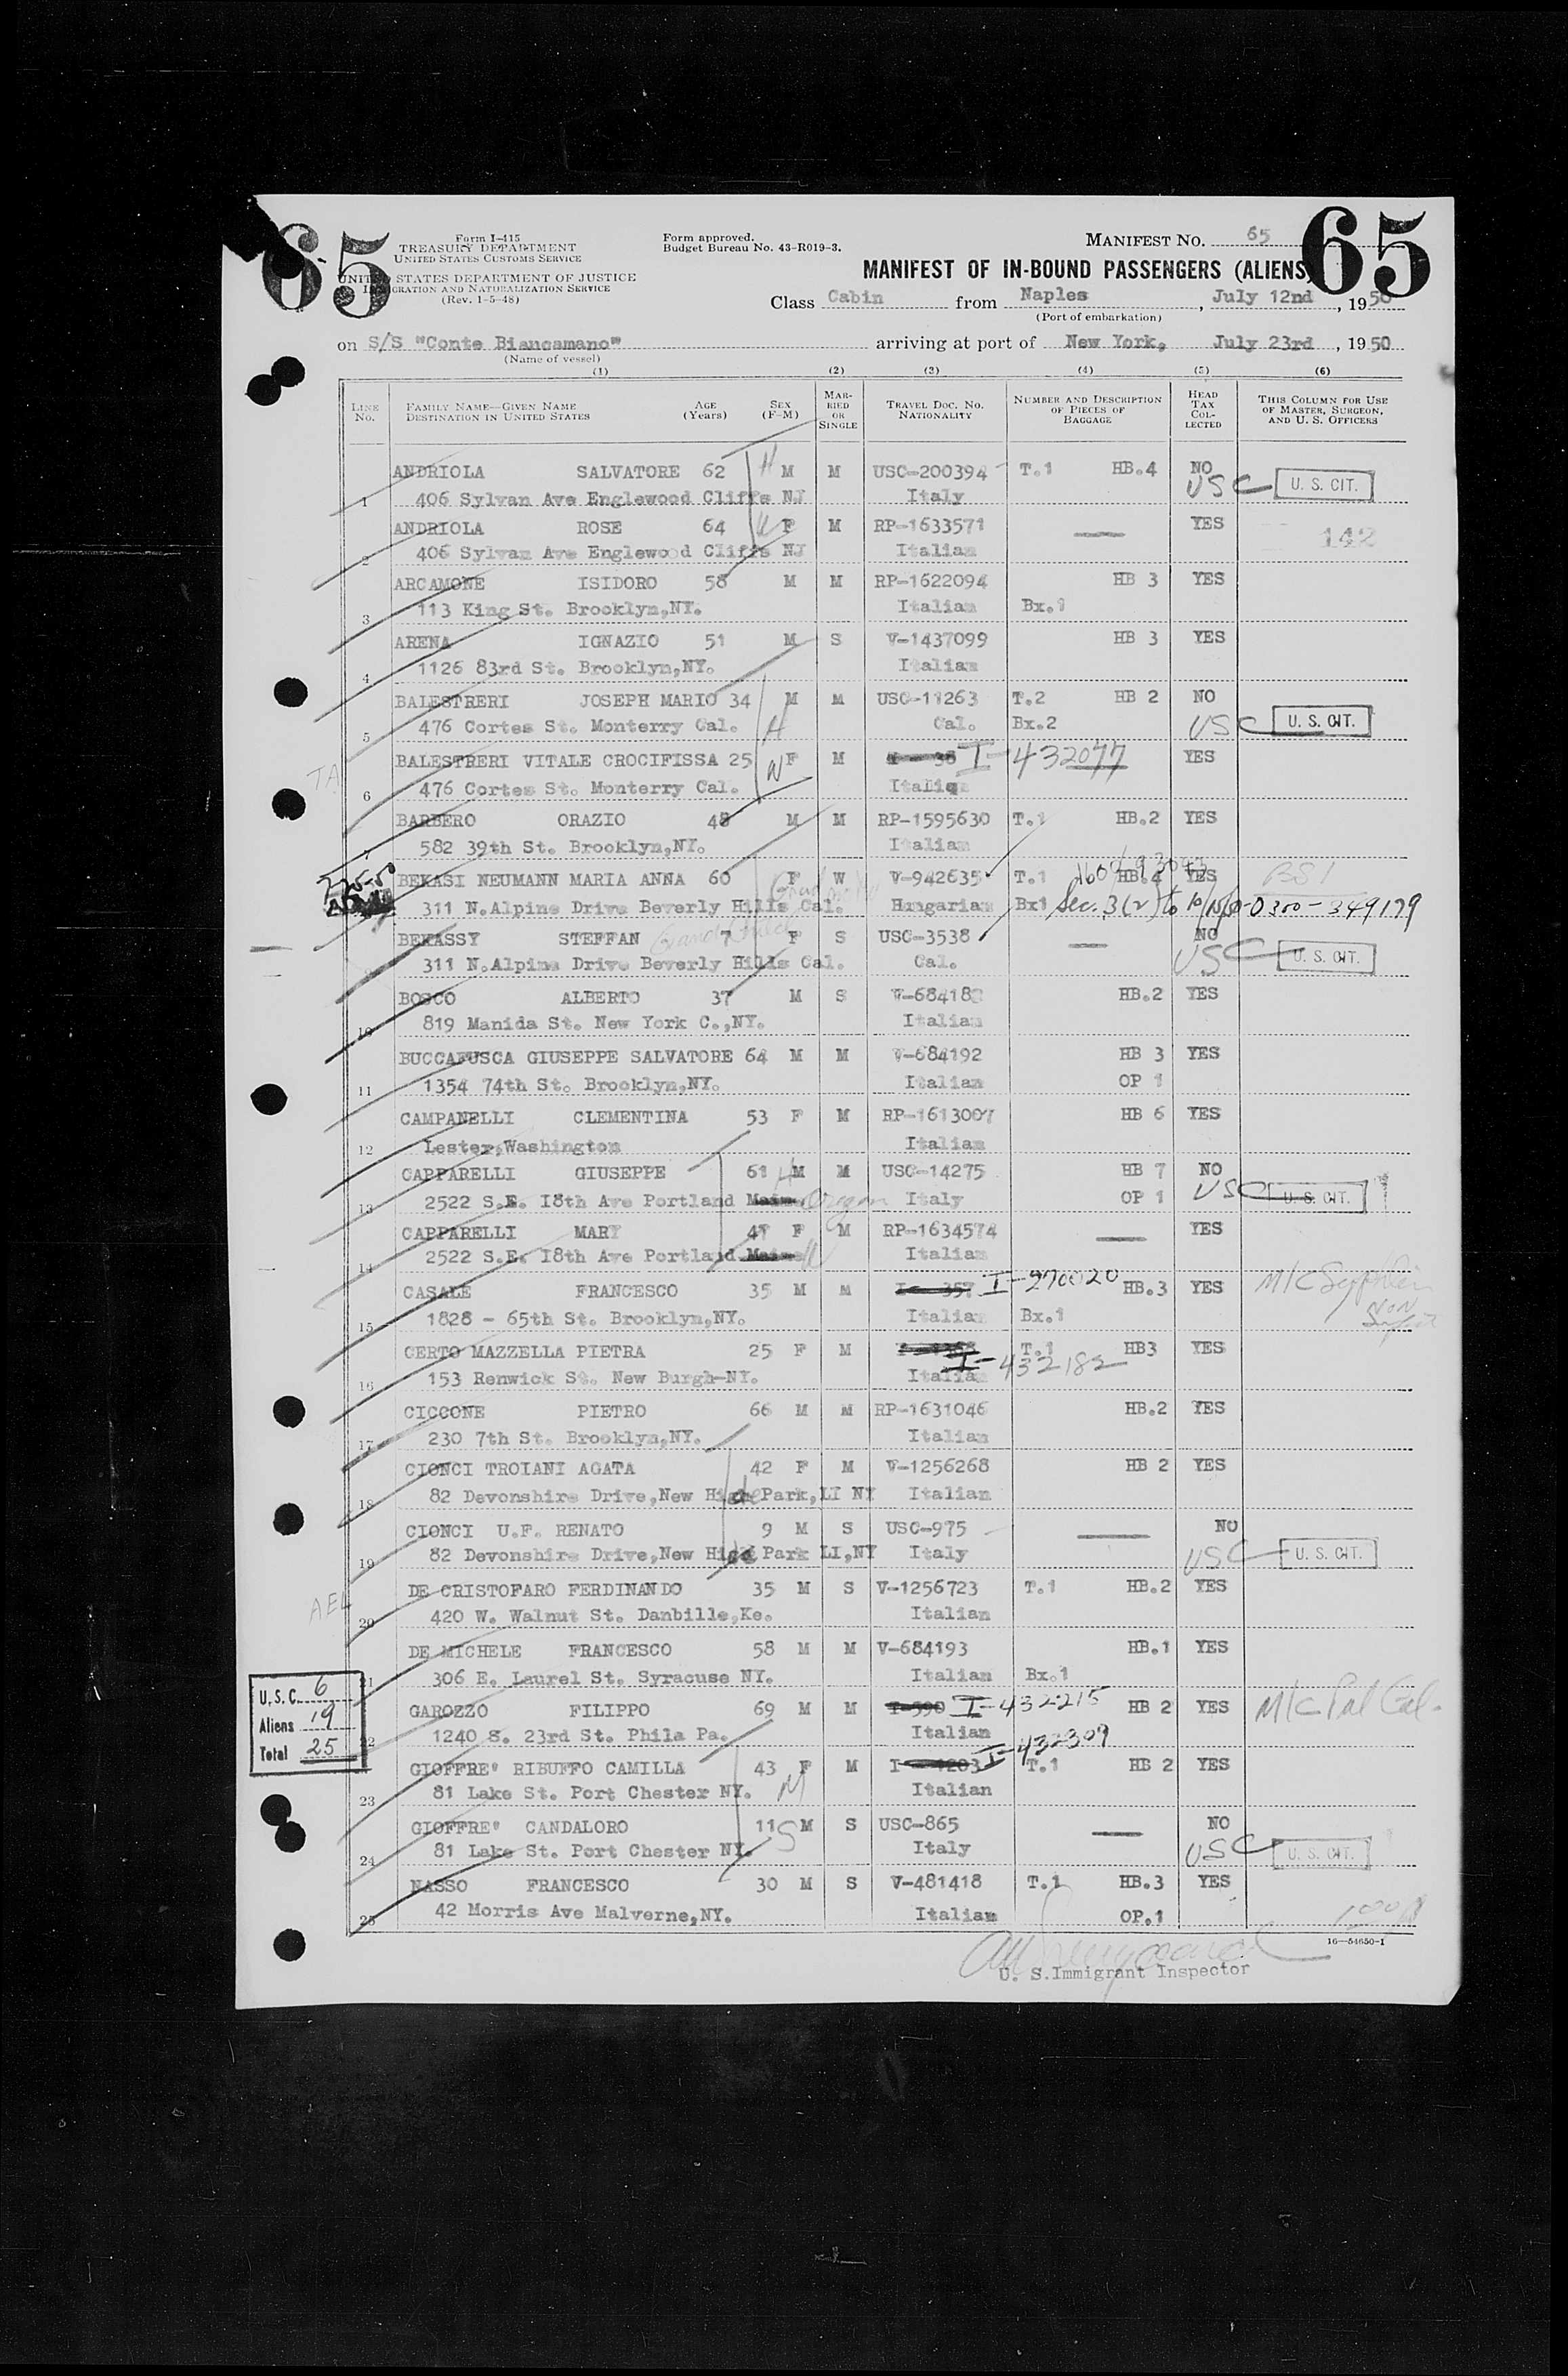 65
65
Form I-415
TREASURY DEPARTMENT
UNITED STATES CUSTOMS SERVICE
UNITED STATES DEPARTMENT OF JUSTICE
IMMIGRATION AND NATURALIZATION SERVICE
(Rev. 1-5-48)
Form approved.
Budget Bureau No. 43-R019-3.
MANIFEST NO. 65
MANIFEST OF IN-BOUND PASSENGERS (ALIENS)
Class Cabin from Naples, July 12nd, 1950
(Port of embarkation)
on S/S "Conte Biancamano" arriving at port of New York, July 23rd, 1950
(Name of vessel)
(1) (2) (3) (4) (5) (6)
LINE No. FAMILY NAME—GIVEN NAME DESTINATION IN UNITED STATES AGE (Years) SEX (F-M) MARRIED OR SINGLE TRAVEL DOC. NO. NATIONALITY NUMBER AND DESCRIPTION OF PIECES OF BAGGAGE HEAD TAX COLLECTED THIS COLUMN FOR USE OF MASTER, SURGEON, AND U. S. OFFICERS
ANDRIOLA SALVATORE 62 H M M USC-200394 T.1 HB.4 NO
1 406 Sylvan Ave Englewood Cliffs NJ Italy USC U. S. CIT.
ANDRIOLA ROSE 64 W F M RP-1633571 — YES
2 406 Sylvan Ave Englewood Cliffs NJ Italian 142
ARCAMONE ISIDORO 58 M M RP-1622094 HB 3 YES
3 113 King St. Brooklyn,NY. Italian Bx.1
ARENA IGNAZIO 51 M S V-1437099 HB 3 YES
4 1126 83rd St. Brooklyn,NY. Italian
BALESTRERI JOSEPH MARIO 34 M M USC-11263 T.2 HB 2 NO
5 476 Cortes St. Monterry Cal. H Cal. Bx.2 USC U. S. CIT.
BALESTRERI VITALE CROCIFISSA 25 F M I-432077 YES
6 476 Cortes St. Monterry Cal. W Italian
BARBERO ORAZIO 48 M M RP-1595630 T.1 HB.2 YES
7 582 39th St. Brooklyn,NY. Italian
BEKASI NEUMANN MARIA ANNA 60 F W V-942635 T.1 HB.4 YES BSI
311 N.Alpine Drive Beverly Hills Cal. Hungarian Bx1 Sec. 3(2) to 10/15/50-0300-349179
BEKASSY STEFFAN Grand Child 7 F S USC-3538 — NO
311 N.Alpine Drive Beverly Hills Cal. Cal. USC U. S. CIT.
BOSCO ALBERTO 37 M S V-684182 HB.2 YES
10 819 Manida St. New York C.,NY. Italian
BUCCAFUSCA GIUSEPPE SALVATORE 64 M M V-684192 HB 3 YES
11 1354 74th St. Brooklyn,NY. Italian OP 1
CAMPANELLI CLEMENTINA 53 F M RP-1613007 HB 6 YES
12 Lester,Washington Italian
CAPPARELLI GIUSEPPE 61 H M M USC-14275 HB 7 NO
13 2522 S.E. I8th Ave Portland Maine Oregon Italy OP 1 USC U. S. CIT.
CAPPARELLI MARY 47 F M RP-1634574 — YES
14 2522 S.E. I8th Ave Portland Maine W Italian
CASALE FRANCESCO 35 M M I-270020 HB.3 YES
15 1828 - 65th St. Brooklyn,NY. Italian Bx.1
CERTO MAZZELLA PIETRA 25 F M T.1 HB3 YES
16 153 Renwick St. New Burgh-NY. Italian I-432182
CICCONE PIETRO 66 M M RP-1631046 HB.2 YES
17 230 7th St. Brooklyn,NY. Italian
CIONCI TROIANI AGATA 42 F M V-1256268 HB 2 YES
18 82 Devonshire Drive,New Hide Park,LI NY Italian
CIONCI U.F. RENATO 9 M S USC-975 — NO
19 82 Devonshire Drive,New Hide Park LI,NY Italy USC U. S. CIT.
DE CRISTOFARO FERDINANDO 35 M S V-1256723 T.1 HB.2 YES
20 420 W. Walnut St. Danbille,Ke. Italian
DE MICHELE FRANCESCO 58 M M V-684193 HB.1 YES
21 306 E. Laurel St. Syracuse NY. Italian Bx.1
GAROZZO FILIPPO 69 M M I-590 I-432215 HB 2 YES
22 1240 S. 23rd St. Phila Pa. Italian
GIOFFRE' RIBUFFO CAMILLA 43 F M I-1203 I-432309 T.1 HB 2 YES
23 81 Lake St. Port Chester NY. M Italian
GIOFFRE' CANDALORO 11 S M S USC-865 — NO
24 81 Lake St. Port Chester NY. Italy USC U. S. CIT.
NASSO FRANCESCO 30 M S V-481418 T.1 HB.3 YES
25 42 Morris Ave Malverne,NY. Italian OP.1
U.S.C. 6
Aliens 19
Total 25
16—54650-1
U. S. Immigrant Inspector